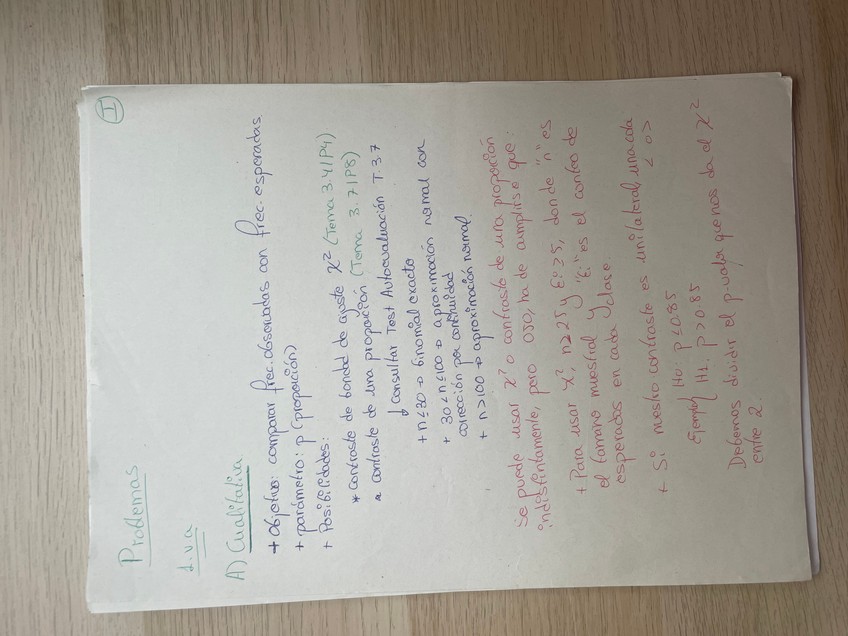 I
Problemas
1.v.a
A) Cualitativa
+ objetivo: comparar frec. observadas con frec. esperadas
+ parámetro: p (proporción)
+ Posibilidades:
* contraste de bondad de ajuste χ² (Tema 3.4/P4)
* contraste de una proporción (Tema 3.7/P8)
↓ consultar Test Autoevaluación T.3.7
+ n ≤ 30 → binomial exacto
+ 30 < n ≤ 100 → aproximación normal con
corrección por continuidad
+ n > 100 → aproximación normal.
Se puede usar χ² o contraste de una proporción
indistintamente, pero OJO, ha de cumplirse que:
+ Para usar χ², n ≥ 25 y Ei ≥ 5, donde "n" es
el tamaño muestral y "Ei" es el conteo de
esperados en cada clase.
+ Si nuestro contraste es unilateral, una cola
< o >
Ejemplo H0: p ≤ 0.85
H1: p > 0.85
Debemos dividir el p-valor que nos da el χ²
entre 2.